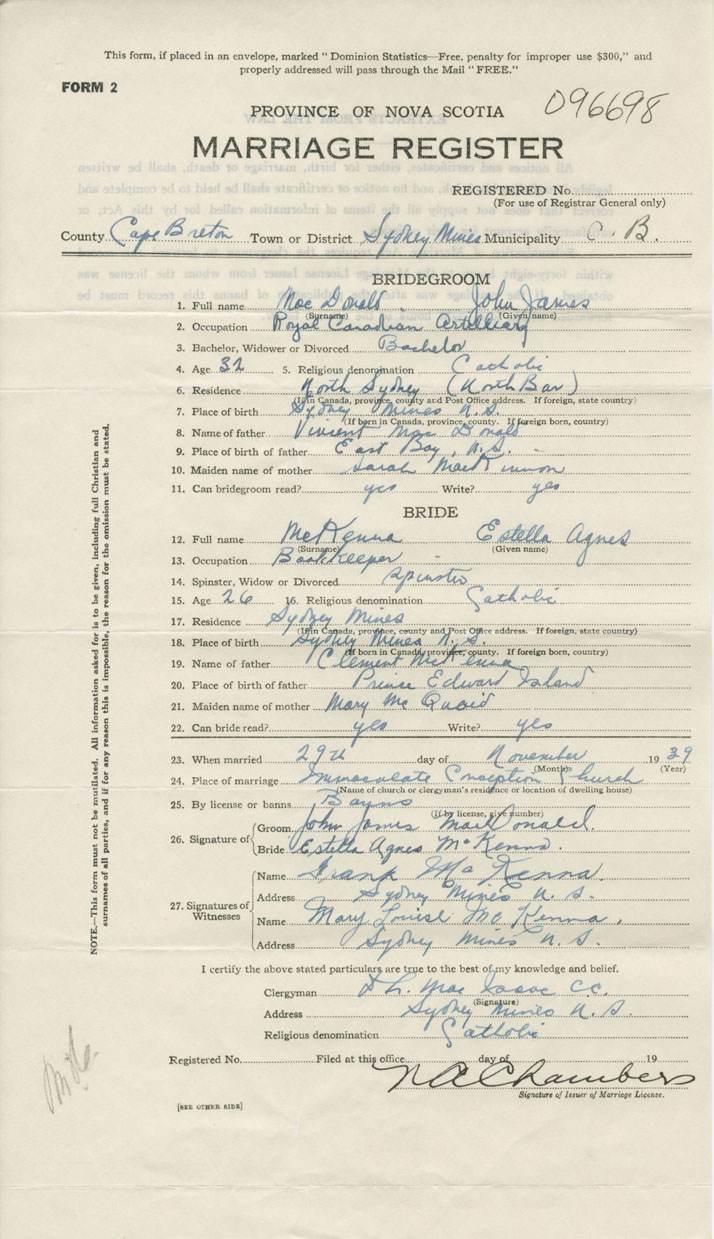 This form, if placed in an envelope, marked "Dominion Statistics—Free, penalty for improper use $300," and
properly addressed will pass through the Mail "FREE."
FORM 2
096698
PROVINCE OF NOVA SCOTIA
MARRIAGE REGISTER
REGISTERED No.
(For use of Registrar General only)
County Cape Breton Town or District Sydney Mines Municipality C. B.
BRIDEGROOM
1. Full name Mac Donald John James
(Surname) (Given name)
2. Occupation Royal Canadian Artilliary
3. Bachelor, Widower or Divorced Bachelor
4. Age 32 5. Religious denomination Catholic
6. Residence North Sydney (North Bar)
(If in Canada, province, county and Post Office address. If foreign, state country)
7. Place of birth Sydney Mines N.S.
(If born in Canada, province, county. If foreign born, country)
8. Name of father Vincent Mac Donald
9. Place of birth of father East Bay, N.S.
10. Maiden name of mother Sarah MacKinnon
11. Can bridegroom read? yes Write? yes
BRIDE
12. Full name McKenna Estella Agnes
(Surname) (Given name)
13. Occupation Bookkeeper -
14. Spinster, Widow or Divorced Spinster
15. Age 26 16. Religious denomination Catholic
17. Residence Sydney Mines
(If in Canada, province, county and Post Office address. If foreign, state country)
18. Place of birth Sydney Mines N.S.
(If born in Canada, province, county. If foreign born, country)
19. Name of father Clement McKenna
20. Place of birth of father Prince Edward Island
21. Maiden name of mother Mary Mc Quaid
22. Can bride read? yes Write? yes
23. When married 29th day of November 1939
(Month) (Year)
24. Place of marriage Immaculate Conception Church
(Name of church or clergyman's residence or location of dwelling house)
25. By license or banns Banns
(If by license, give number)
26. Signature of
Groom John James MacDonald.
Bride Estella Agnes McKenna.
27. Signatures of Witnesses
Name Frank McKenna
Address Sydney Mines N.S.
Name Mary Louise McKenna.
Address Sydney Mines N.S.
I certify the above stated particulars are true to the best of my knowledge and belief.
Clergyman D L. Mac Isaac CC.
(Signature)
Address Sydney Mines N.S.
Religious denomination Catholic
Registered No. Filed at this office day of 19
N A Chambers
Signature of Issuer of Marriage License.
[SEE OTHER SIDE]
NOTE.—This form must not be mutilated. All information asked for is to be given, including full Christian and
surnames of all parties, and if for any reason this is impossible, the reason for the omission must be stated.